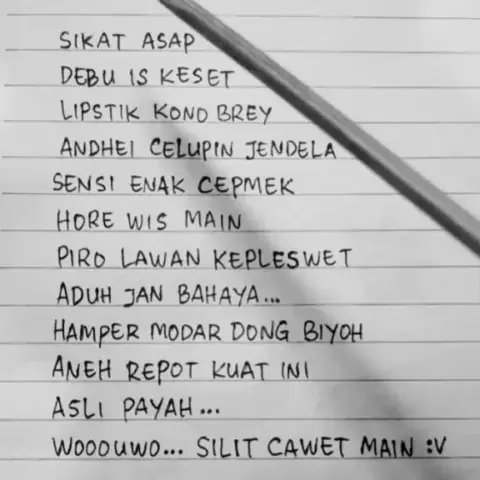 SIKAT ASAP
DEBU IS KESET
LIPSTIK KONO BREY
ANDHEI CELUPIN JENDELA
SENSI ENAK CEPMEK
HORE WIS MAIN
PIRO LAWAN KEPLESWET
ADUH JAN BAHAYA...
HAMPER MODAR DONG BIYOH
ANEH REPOT KUAT INI
ASLI PAYAH...
WOOOUWO... SILIT CAWET MAIN :V